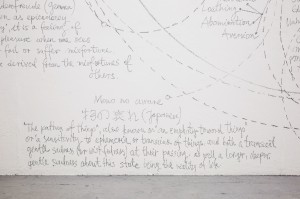 as dependency
it is a feeling of
pleasure when one sees
fail or suffer misfortune
derived from the misfortunes of
others
Loathing
Abomination
Aversion
Mono no aware
物の哀れ (Japanese)
"The pathos of things", also known as an empathy toward things
or a sensitivity to ephemera
transience of things and both a transient
gentle sadness (or wistfulness) at their passing as well a longer, deeper
gentle sadness about this state being the reality of life